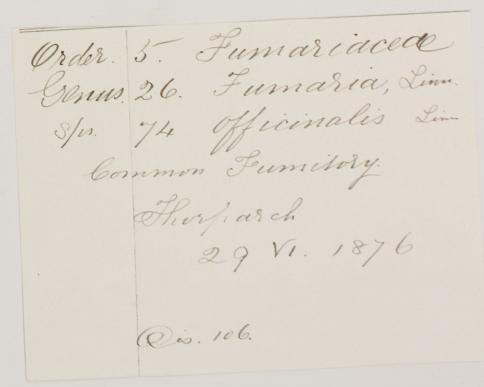 Order. 5. Fumariaceae
Genus. 26. Fumaria, Linn.
S/ps. 74 officinalis Linn
Common Fumitory
Thorparch
29 VI. 1876
Dis. 106.